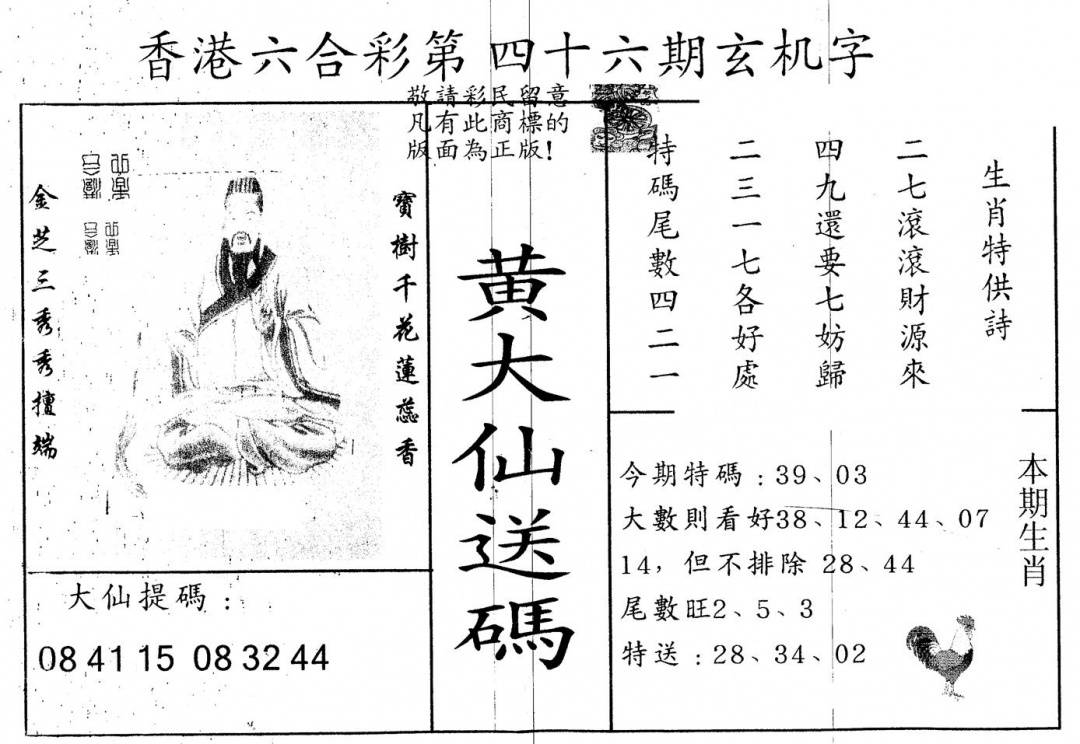 香港六合彩第 四十六期玄机字
敬請彩民留意
凡有此商標的
版面為正版!
寶樹千花蓮蕊香
金芝三秀秀擅端
大仙提碼:
08 41 15 08 32 44
黃大仙送碼
生肖特供詩
二七滾滾財源來
四九還要七妨歸
二三一七各好處
特碼尾數四二一
本期生肖
今期特碼:39、03
大數則看好38、12、44、07
14,但不排除 28、44
尾數旺2、5、3
特送:28、34、02